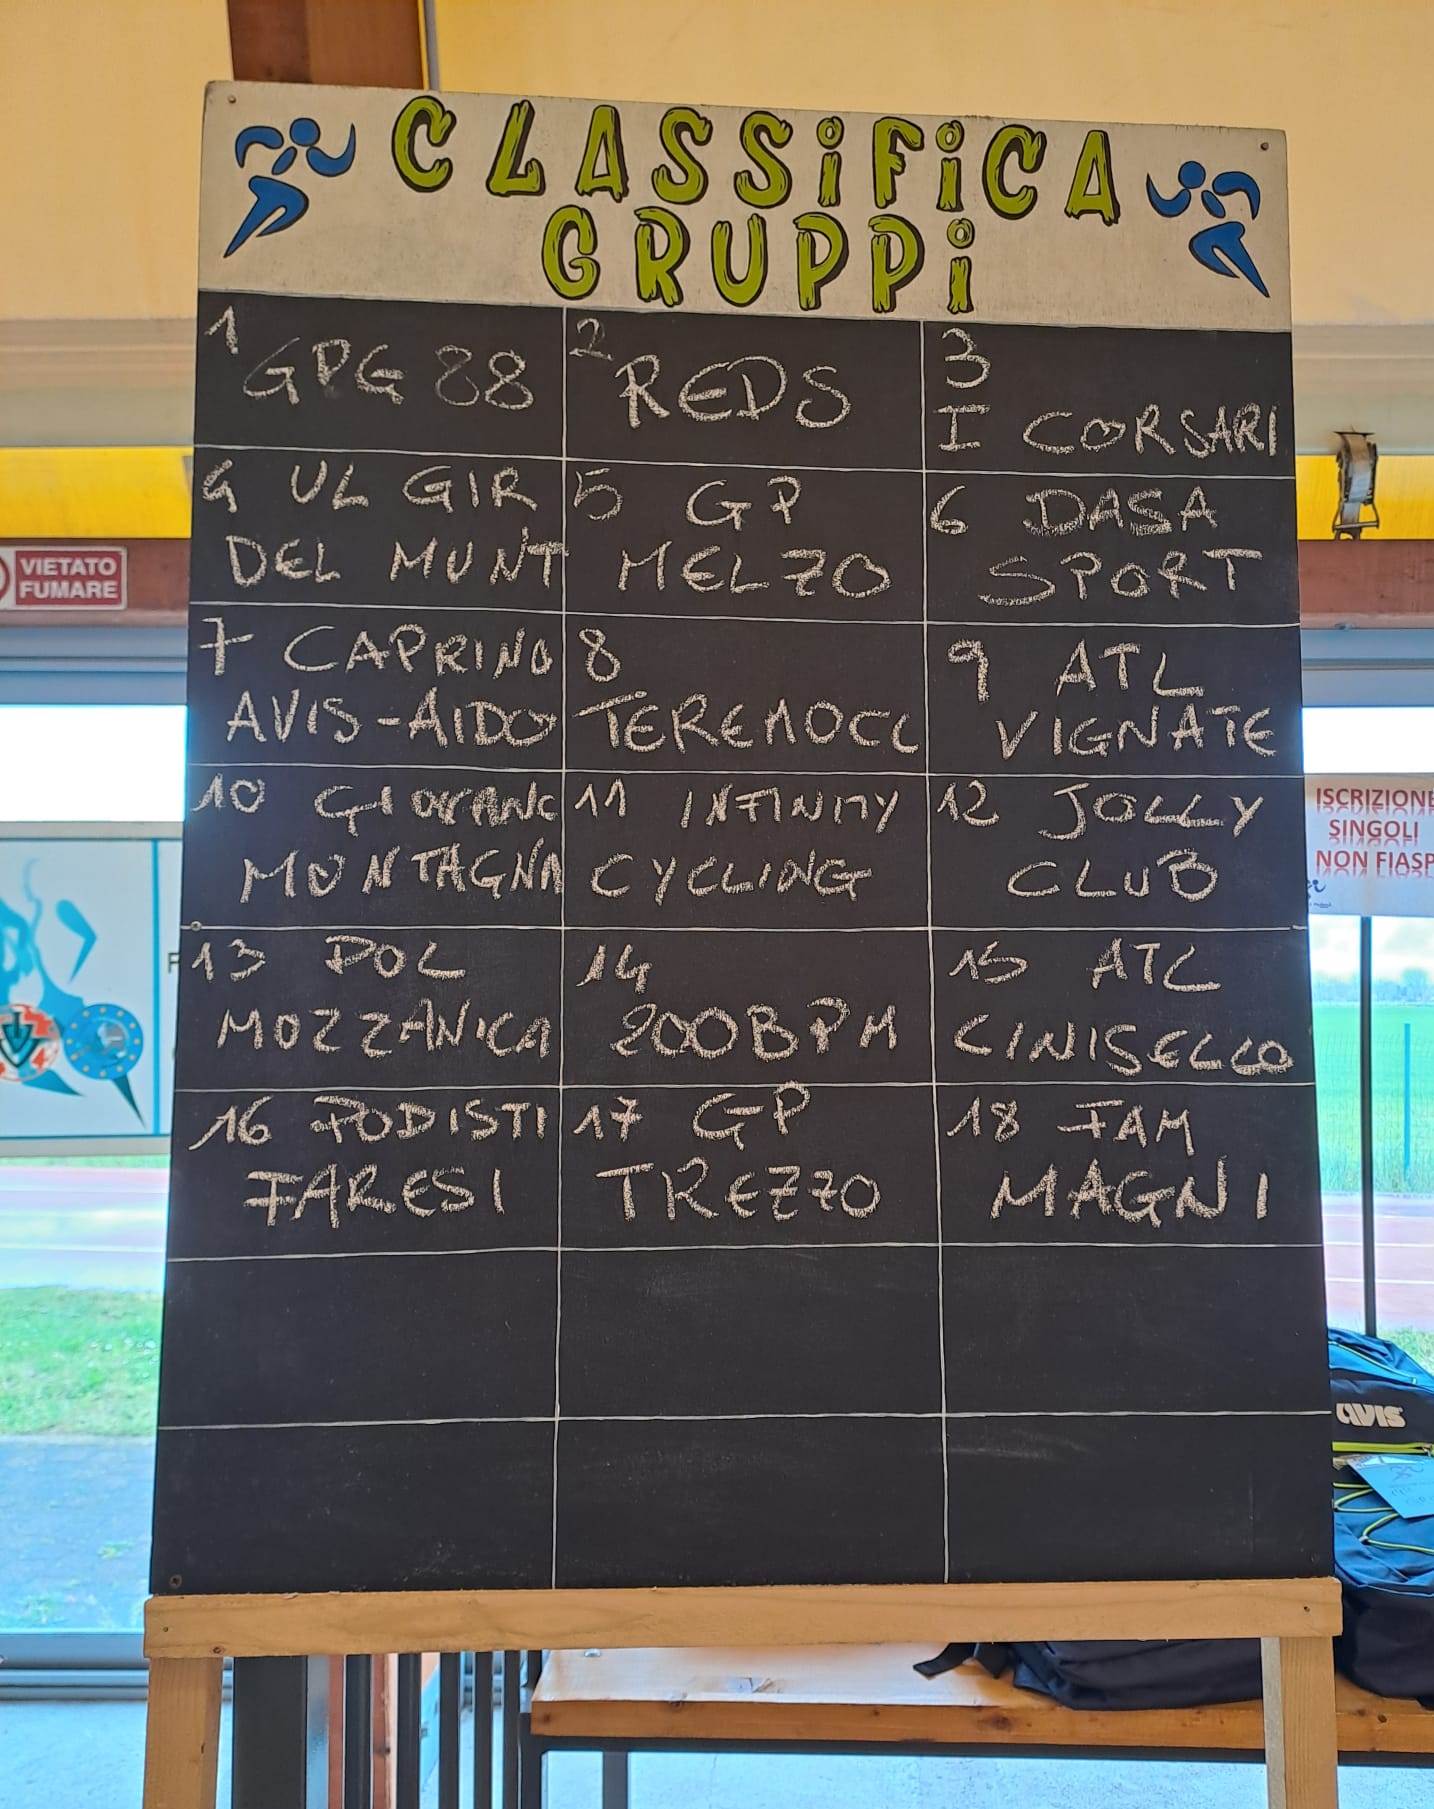 CLASSiFiCA
GRUPPi
1 GPG 88
2 REDS
3
I CORSARI
4 UL GIR
DEL MUNT
5 GP
MELZO
6 DASA
SPORT
7 CAPRINO
AVIS-AIDO
8
TEREMOCC
9 ATL
VIGNATE
10
MONTAGNA
11 INFINITY
CYCLING
12 JOLLY
CLUB
13 POL
MOZZANICA
14
200BPM
15 ATL
CINISELLO
16 PODISTI
FARESI
17 GP
TREZZO
18 FAM
MAGNI
VIETATO
FUMARE
ISCRIZIONE
SINGOLI
NON FIASP
AVIS